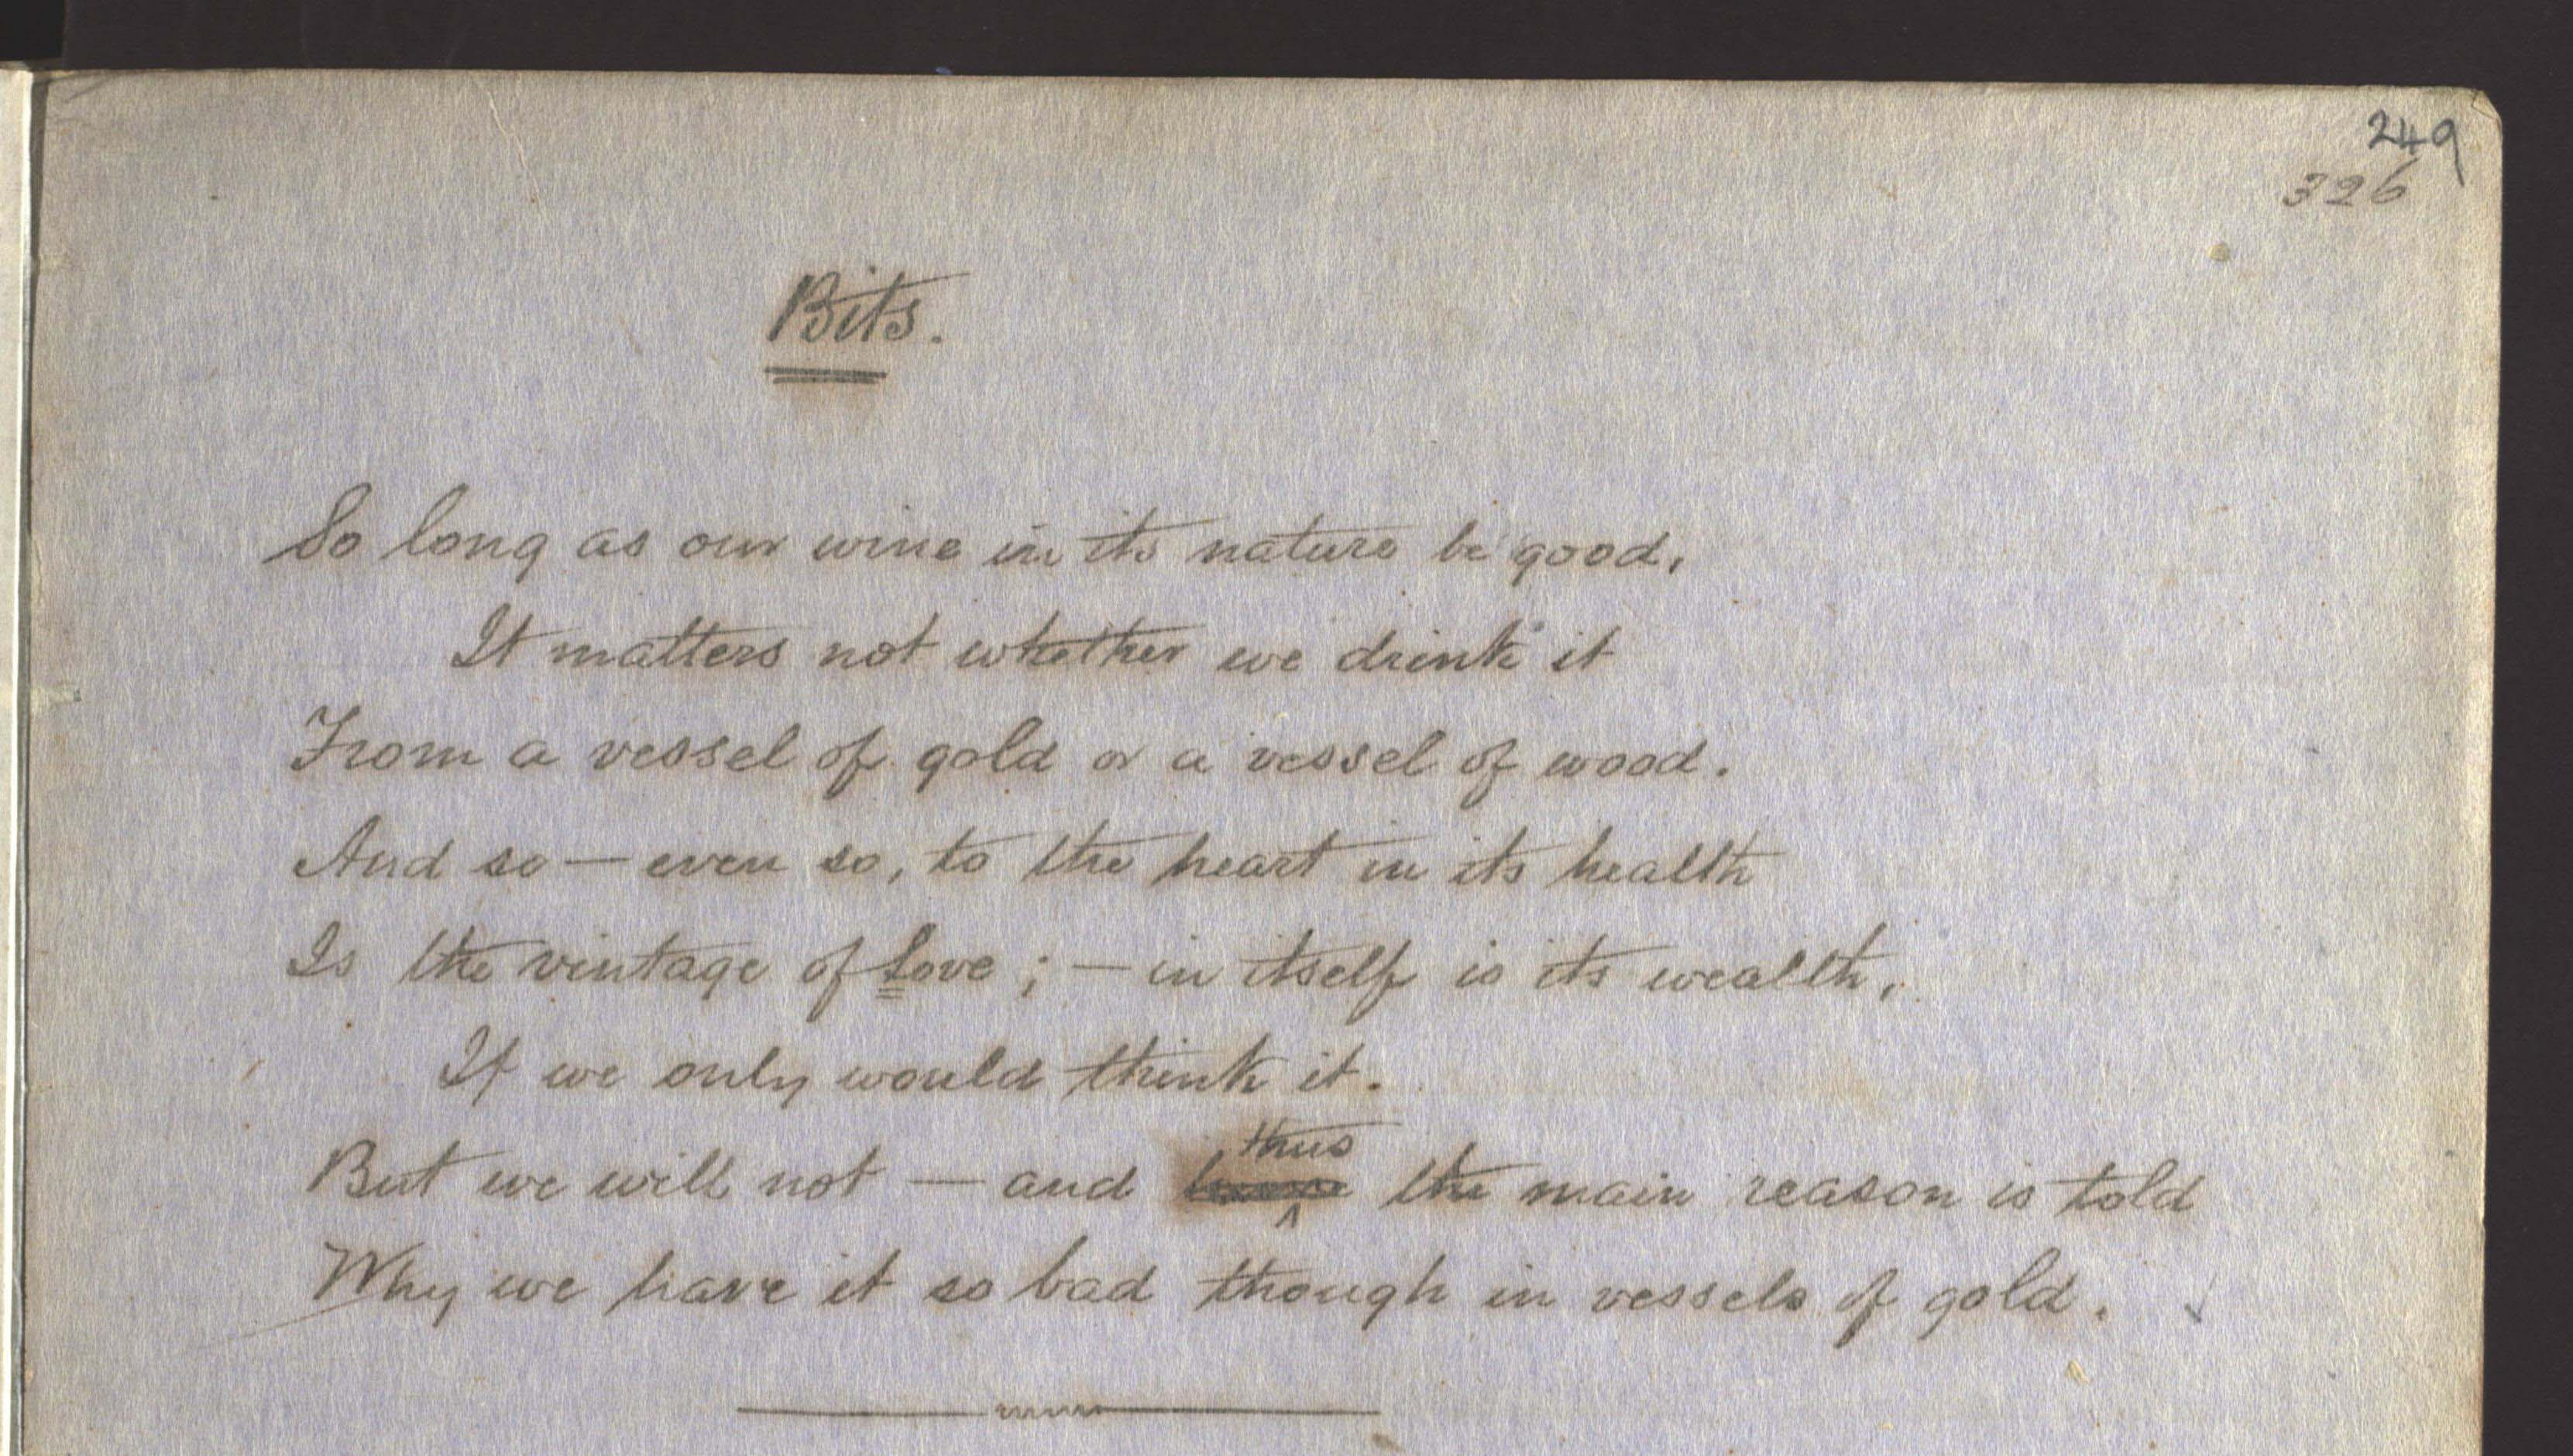 249
326
Bits.
So long as our wine in its nature be good,
It matters not whether we drink it
From a vessel of gold or a vessel of wood.
And so — even so, to the heart in its health
Is the vintage of Love ; — in itself is its wealth,
If we only would think it.
thus
But we will not — and the main reason is told
Why we have it so bad though in vessels of gold.